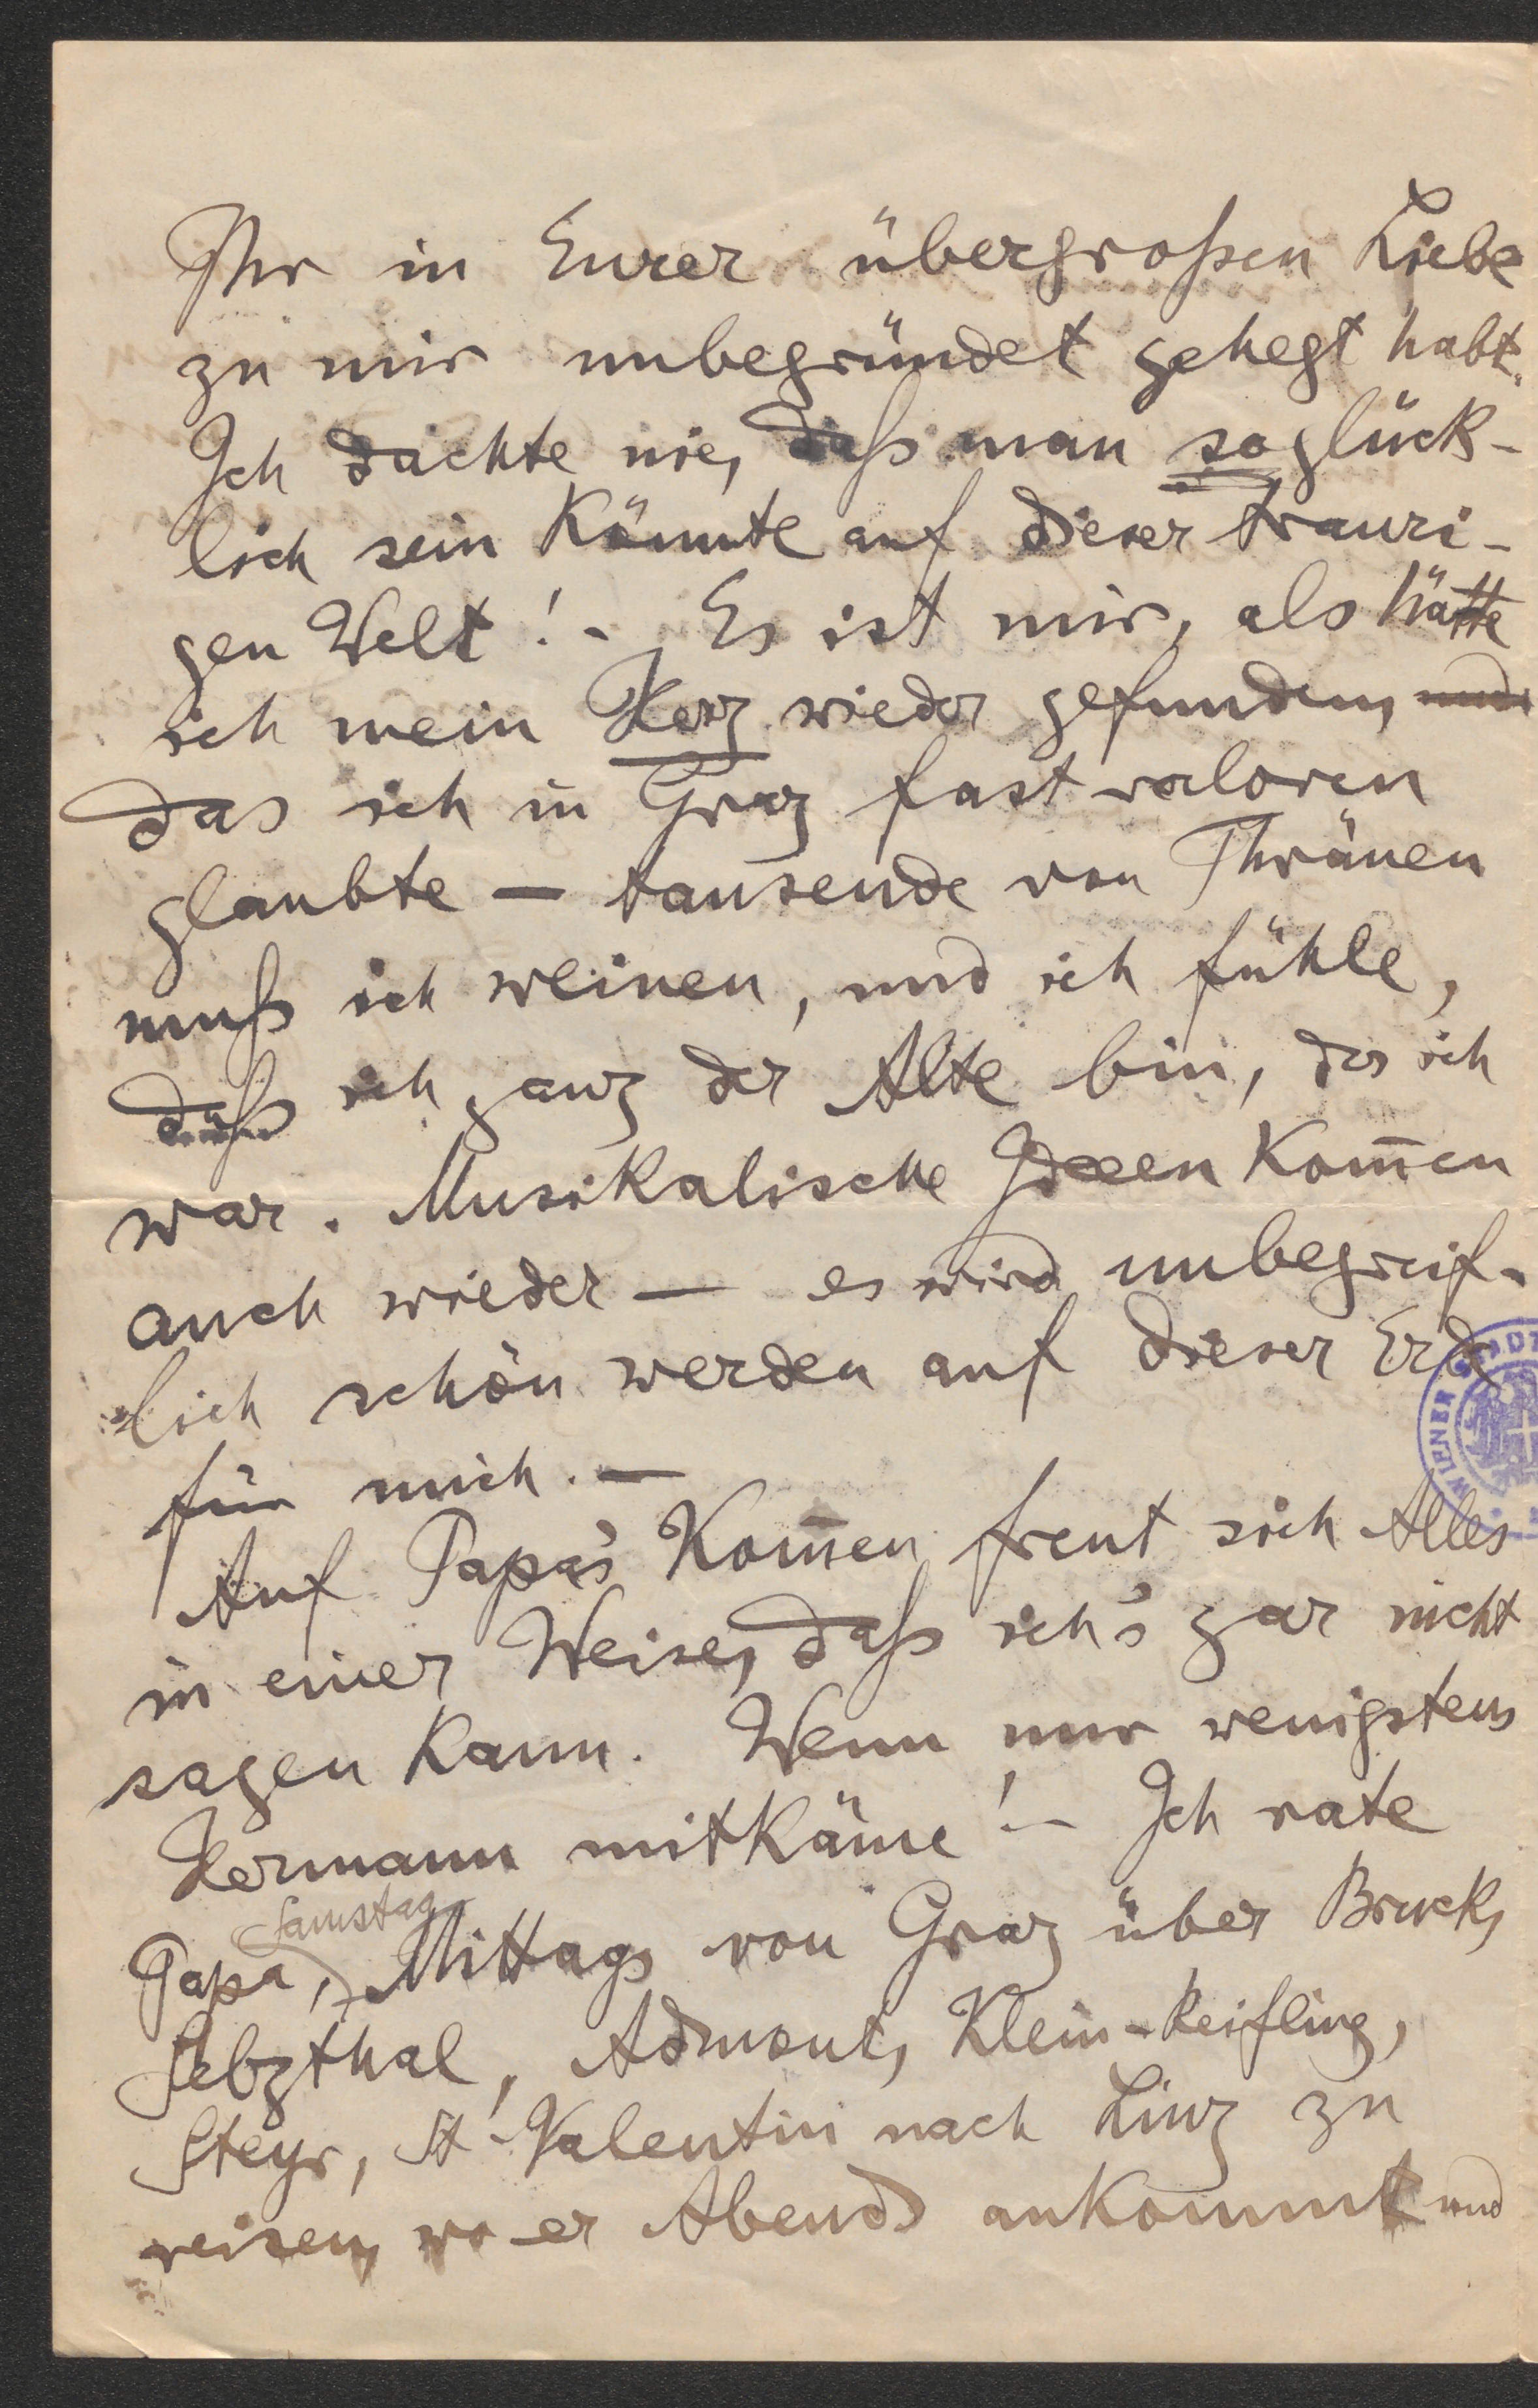 Ihr in Eurer übergroßen Liebe
zu mir unbegründet gehegt habt.
Ich dachte nie, daß man so glück-
lich sein könnte auf dieser trauri-
gen Welt! - Es ist mir, als hätte
ich mein Herz wieder gefunden, und
das ich in Graz fast verloren
glaubte — tausende von Thränen
muß ich weinen, und ich fühle,
daß ich ganz der Alte bin, der ich
war. Musikalische Ideen kom̅en
auch wieder — es wird unbegreif-
lich schön werden auf dieser Erde
für mich. —
Auf Papa's Kom̅en freut sich Alles
in einer Weise, daß ich's gar nicht
sagen kann. Wenn nur wenigstens
Hermann mitkäme! - Ich rate
Samstag
Papa, Mittags von Graz über Bruck,
Selzthal, Admont, Klein-Reifling,
Steyr, St Valentin nach Linz zu
reisen, wo er Abends ankommt und
WIENER STADT